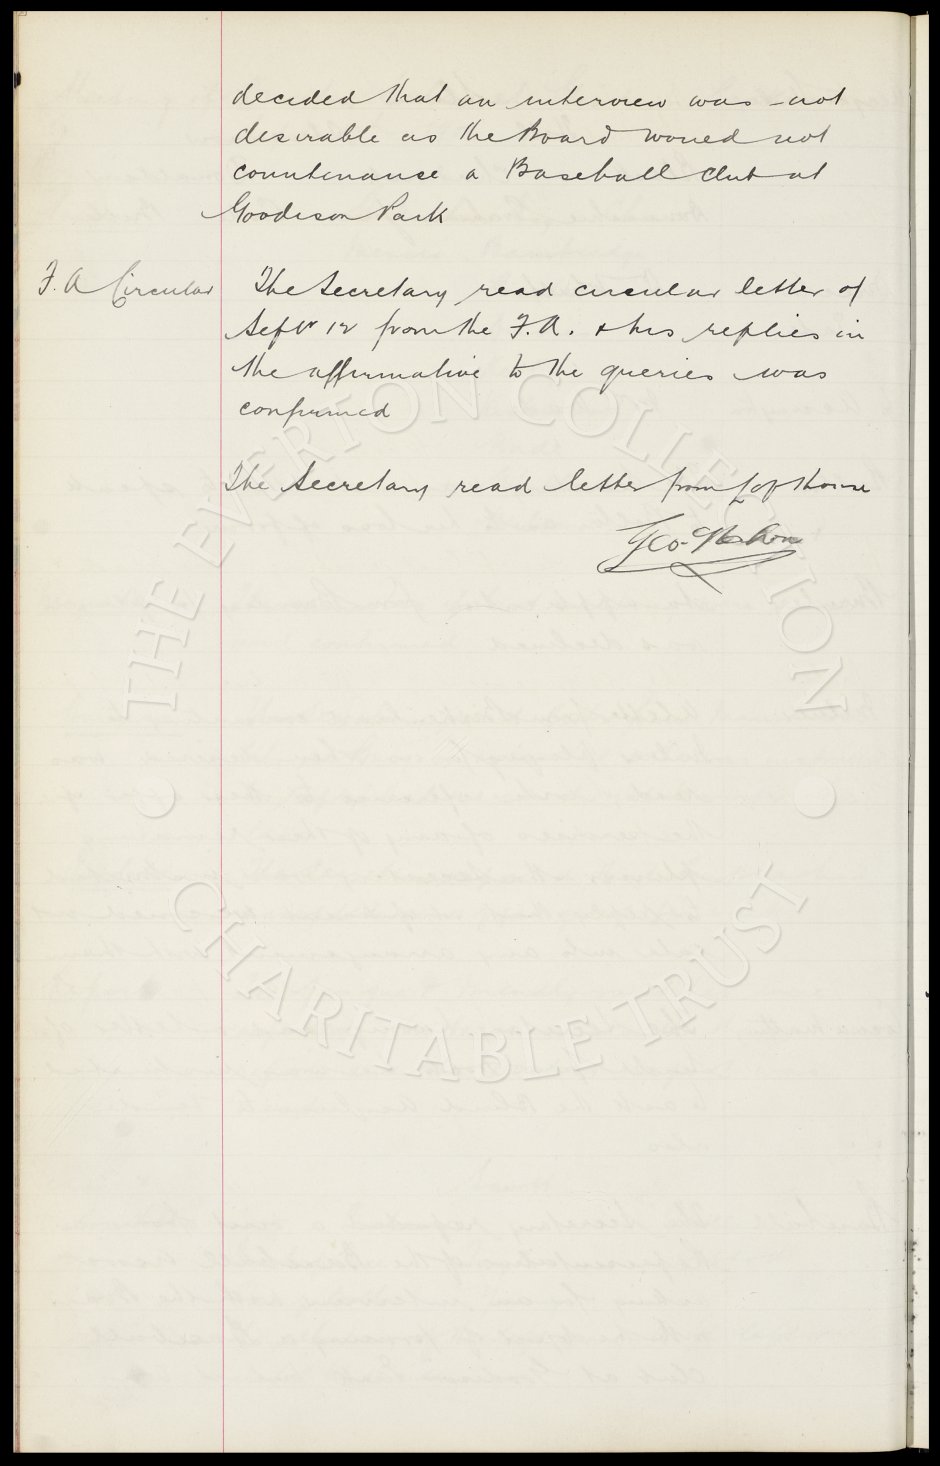 decided that an interview was not
desirable as the Board would not
countenance a Baseball club at
Goodison Park
F. A Circular
The Secretary read circular letter of
Septr 12 from the F.A. & his replies in
the affirmative to the queries was
confirmed
The Secretary read letter from
Geo. Mahon
THE EVERTON COLLECTION
CHARITABLE TRUST